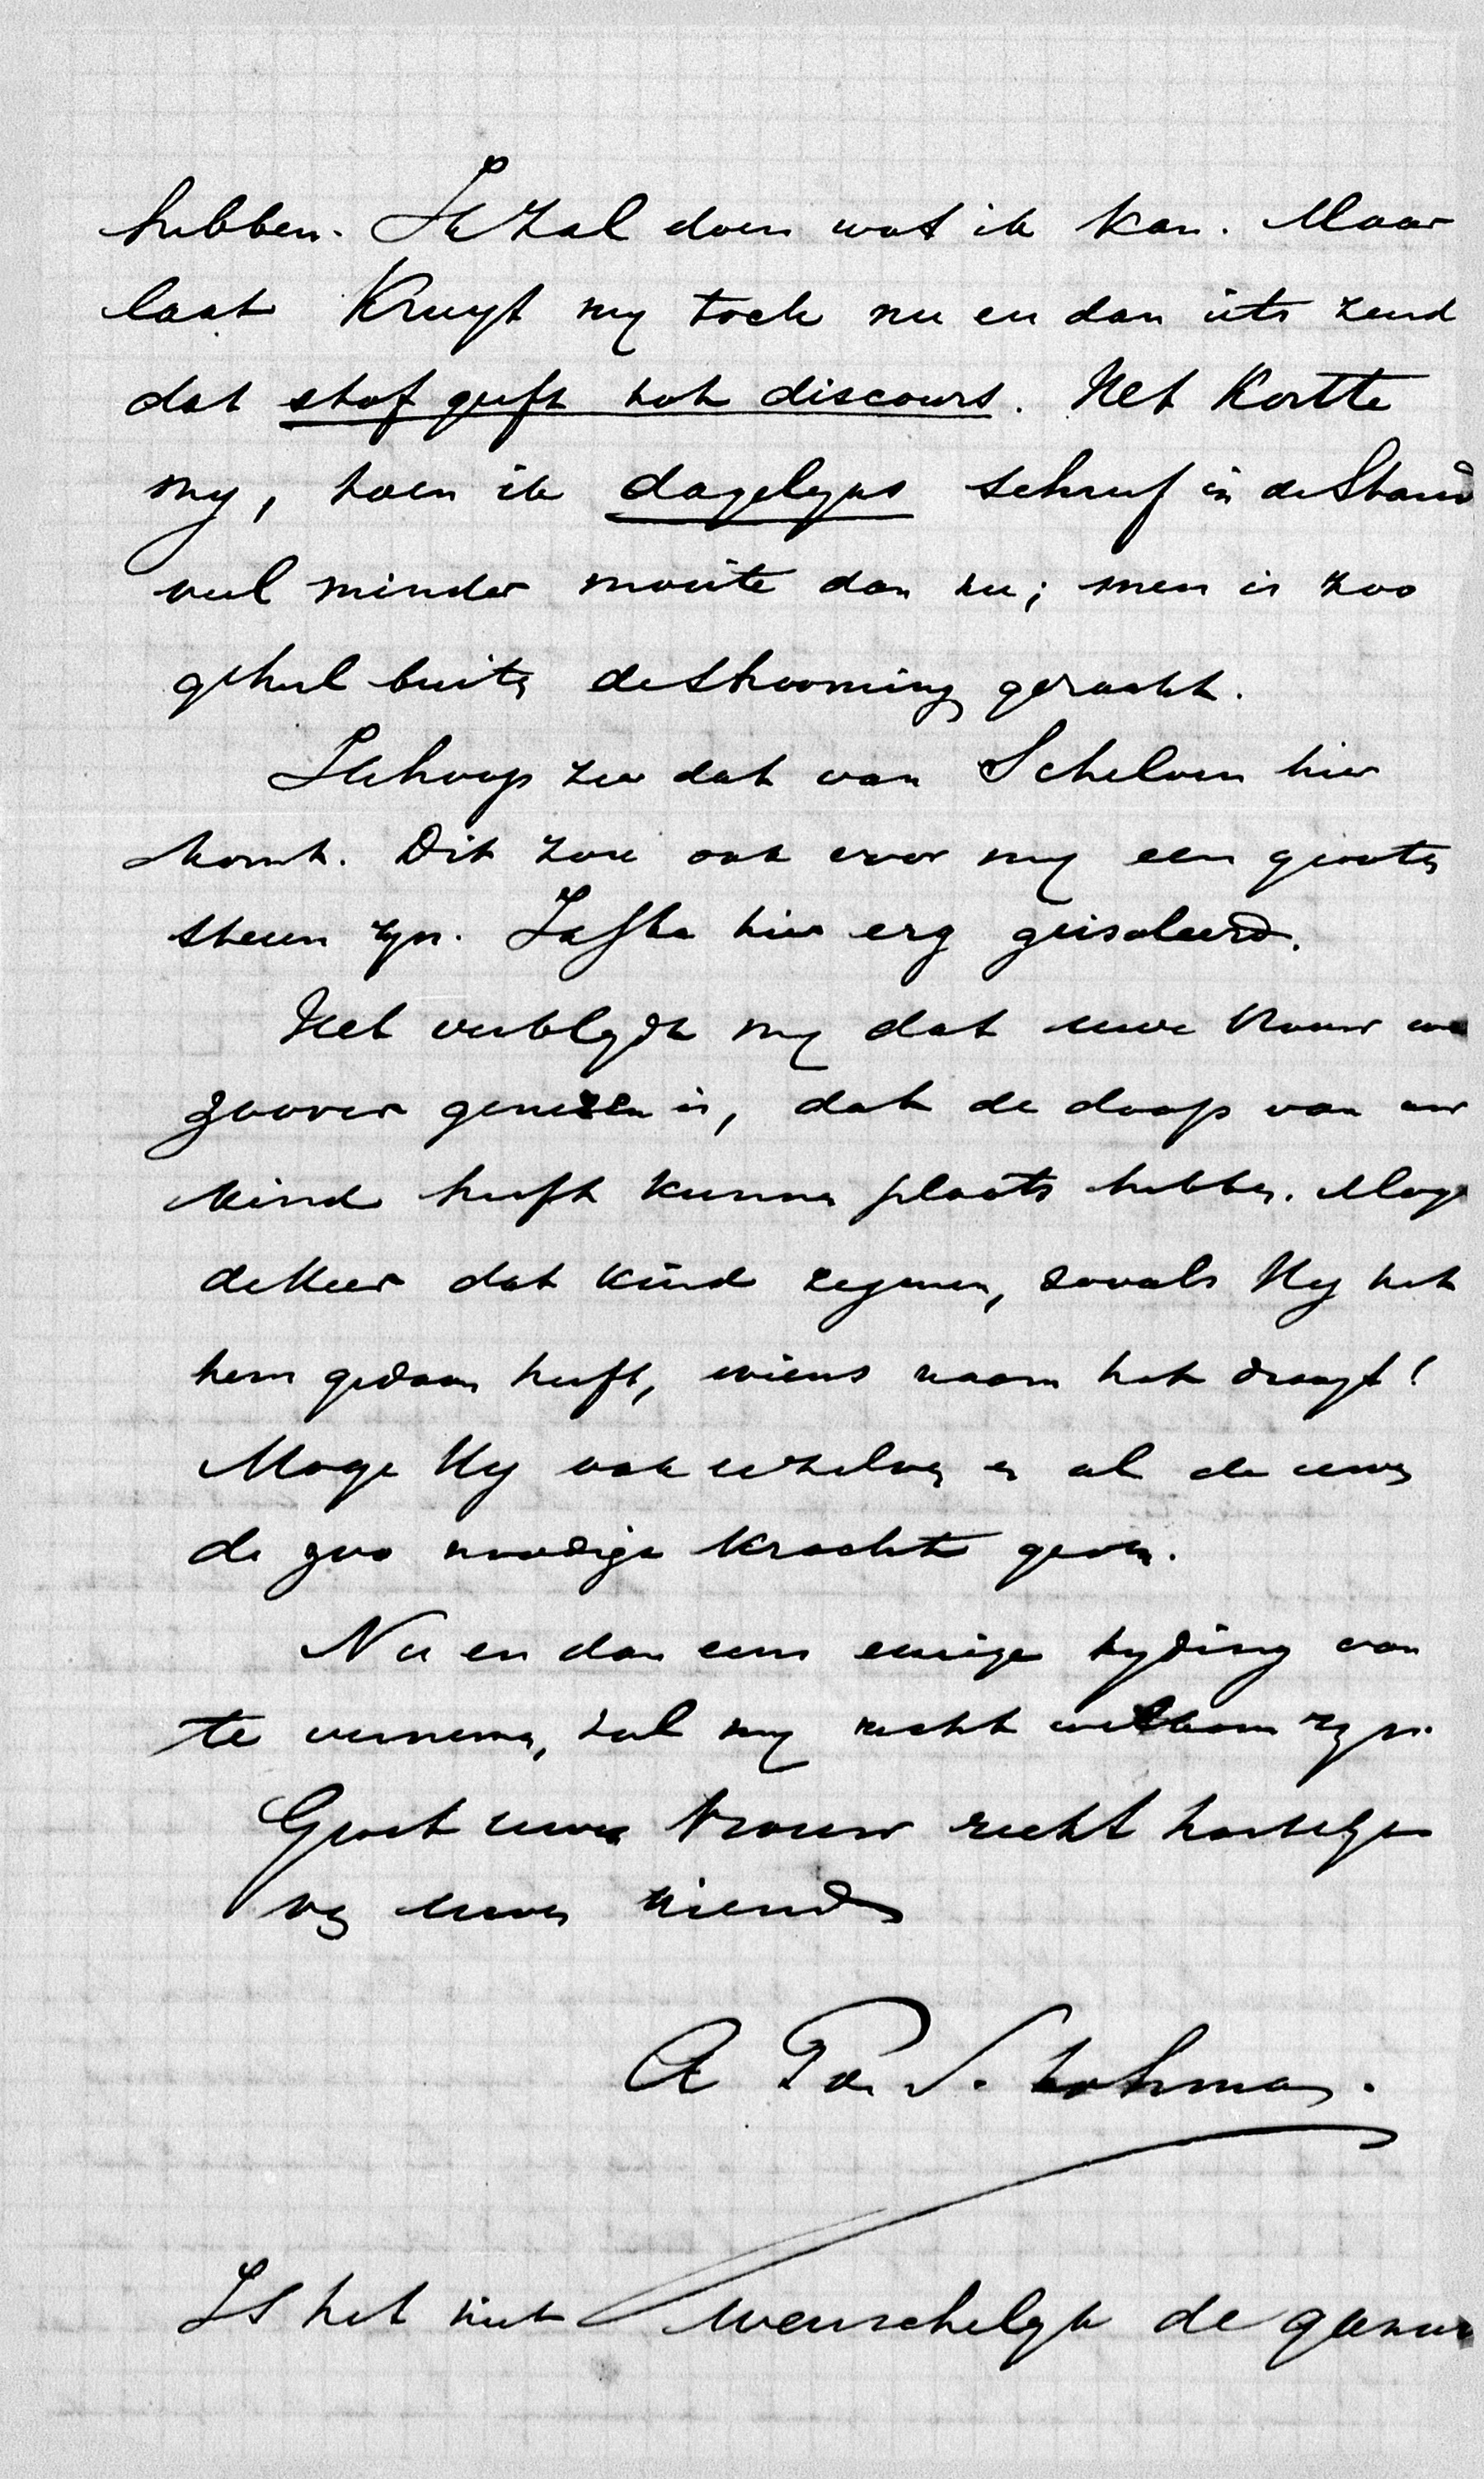 hebben. Ik zal doen wat ik kan. Maar
laat Kruyt my toch nu en dan iets zend
dat stof geeft tot discours. Het kostte
my, toen ik dagelyks schreef in de Stand
veel minder moeite dan nu; men is zoo
geheel buiten de strooming geraakt.
Ik hoop zeer dat van Schelven hier
komt. Dit zou ook voor my een grooten
steun zyn. Ik sta hier erg geisoleerd.
Het verblydt my dat uwe vrouw
zoover genezen is, dat de doop van uw
kind heeft kunnen plaats hebben. Moge
de Heer dat kind zegenen, zooals Hy het
hem gedaan heeft, wiens naam het draagt!
Moge Hy ook uzelven en al de uwen
de zoo noodige krachten geven.
Nu en dan eens eenige tyding van
te vernemen, zal my recht welkom zyn.
Groet uwe vrouw recht hartelyk
van uwen vriend
A F de S. Lohman.
Is het niet wenschelyk de